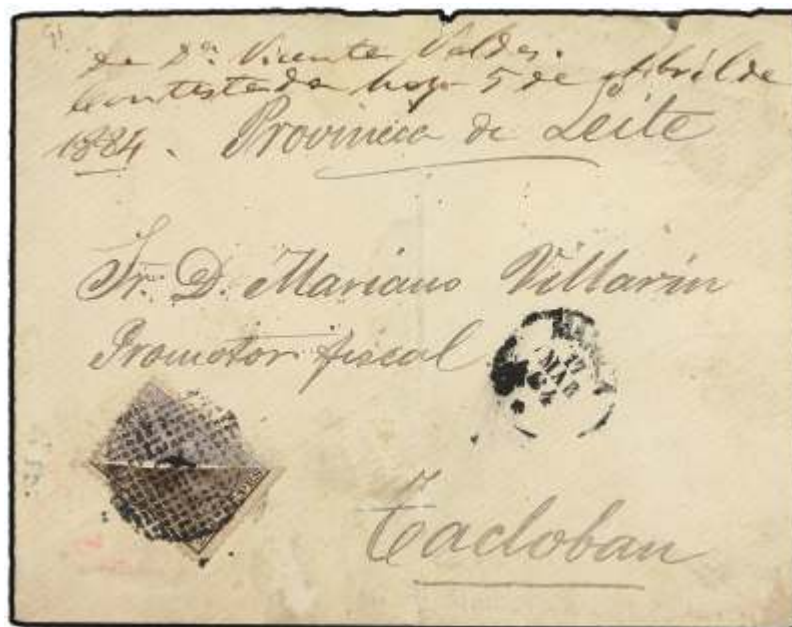 de Dn. Vicente Valdes.
Contestada hoy 5 de Abril de
1884. Provincia de Leite
Sr. D. Mariano Villarin
Promotor fiscal
17
MAR
84
Tacloban